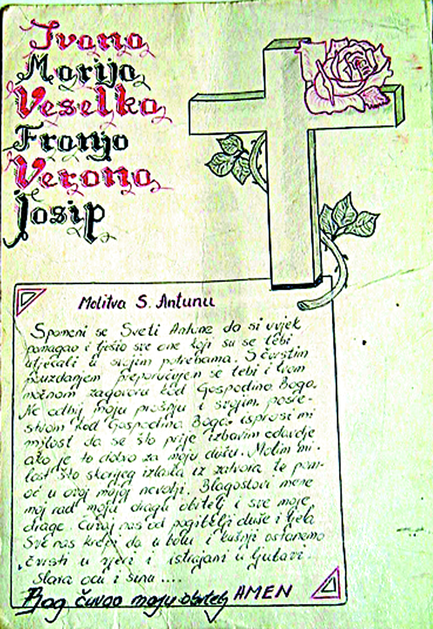 Ivana
Marija
Veselka
Franjo
Verona
Josip
Molitva S. Antunu
Spomeni se Sveti Antune da si uvjek
pomagao i tješio sve one koji su se tebi
utjecali u svojim potrebama. S čvrstim
pouzdanjem preporučujem se tebi i tvom
moćnom zagovoru kod Gospodina Boga.
Ne odbij moju prošnju i svojim posre-
stvom kod Gospodina Boga isprosi mi
milost da se što prije izbavim odavdje
ako je to dobro za moju dušu. Molim mi-
lost što skorijeg izlaza iz zatvora te pom-
oć u ovoj mojoj nevolji. Blagoslovi mene
moj rad moju dragu obitelj i sve moje
drage. Čuvaj nas od pogibelji duše i tjela
Sve nas krijepi da u bolu i kušnji ostanemo
čvrsti u vjeri i ustrajani u ljubavi...
slava ocu i sinu....
Bog čuvao moju obitelj AMEN